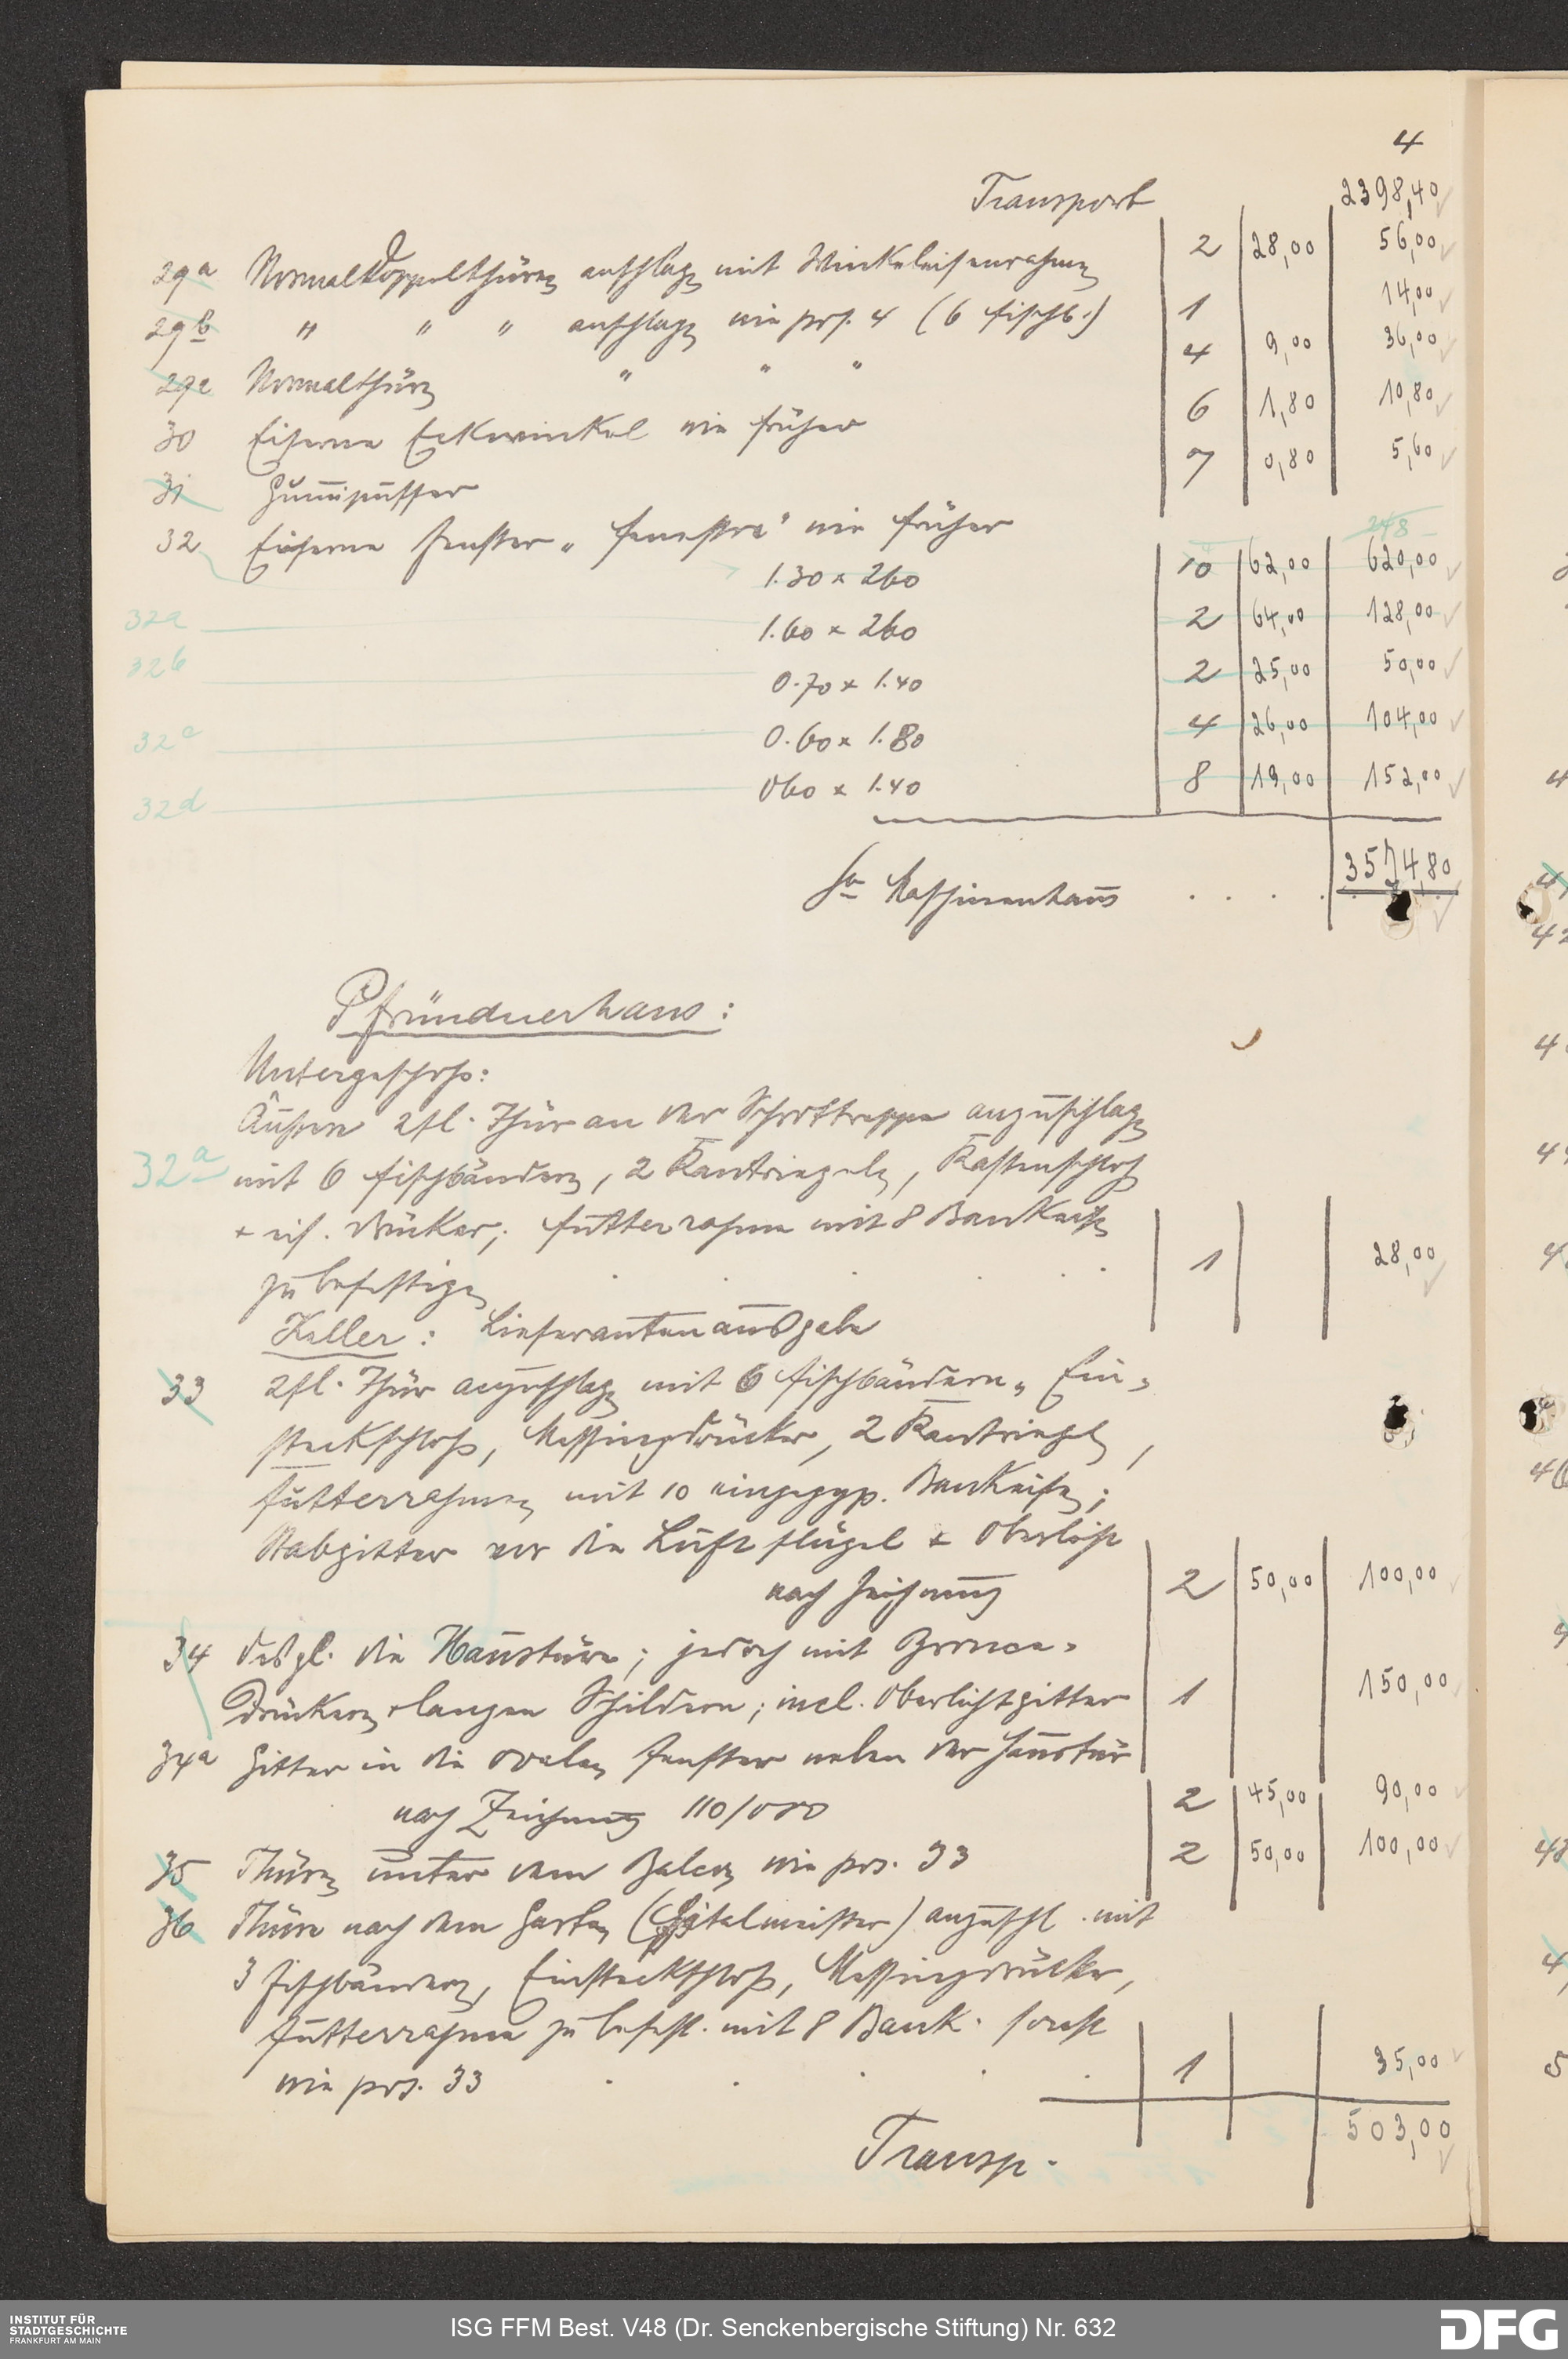 4
Transport 2398,40
29a Normaldoppelthüren anschlagen mit Winkeleisenrahmen 2 28,00 56,00
29b " " " anschlagen wie pos. 4 (6 Fischb.) 1 14,00
29c Normalthüren " " " 4 9,00 36,00
30 Eiserne Eckwinkel wie früher 6 1,80 10,80
31 Gummipuffer 7 0,80 5,60
32 Eiserne Fenster „Fenestra" wie früher
248
1.30 x 260 10 62,00 620,00
32a 1.60 x 260 2 64,00 128,00
32b 0.70 x 1.40 2 25,00 50,00
32c 0.60 x 1.80 4 26,00 104,00
32d 060 x 1.40 8 19,00 152,00
Sa Maschinenhaus . . . . 3574,80
Pfründnerhaus:
Untergeschoss:
Äussere 2fl. Thür an der Schrottreppe anzuschlagen
32a mit 6 Fischbändern, 2 Kantriegeln, Kastenschloß
+ eis. Drücker; Futterrahmen mit 8 Bankeisen
zu befestigen 1 28,00
Keller: Lieferantenausgabe
33 2fl. Thür anzuschlagen mit 6 Fischbändern, Ein-
steckschloss, Messingdrücker, 2 Kantriegel,
Futterrahmen mit 10 eingegyp. Bankeisen;
Stabgitter vor die Luftflügel + Oberlicht
nach Zeichnung 2 50,00 100,00
34 desgl. die Haustüre; jedoch mit Bronce-
Drückern + langen Schildern; incl. Oberlichtgitter 1 150,00
34a Gitter in die ovalen Fenster neben der Haustür
nach Zeichnung 110/080 2 45,00 90,00
35 Thüren unter dem Balcon wie pos. 33 2 50,00 100,00
36 Thüre nach dem Garten (Spitalmeister) anzuschl. mit
3 Fischbändern, Einsteckschloß, Messingdrücker,
Futterrahmen zu befest. mit 8 Bank. sonst
wie pos. 33 1 35,00
Transp. 503,00
INSTITUT FÜR
STADTGESCHICHTE
FRANKFURT AM MAIN
ISG FFM Best. V48 (Dr. Senckenbergische Stiftung) Nr. 632
DFG